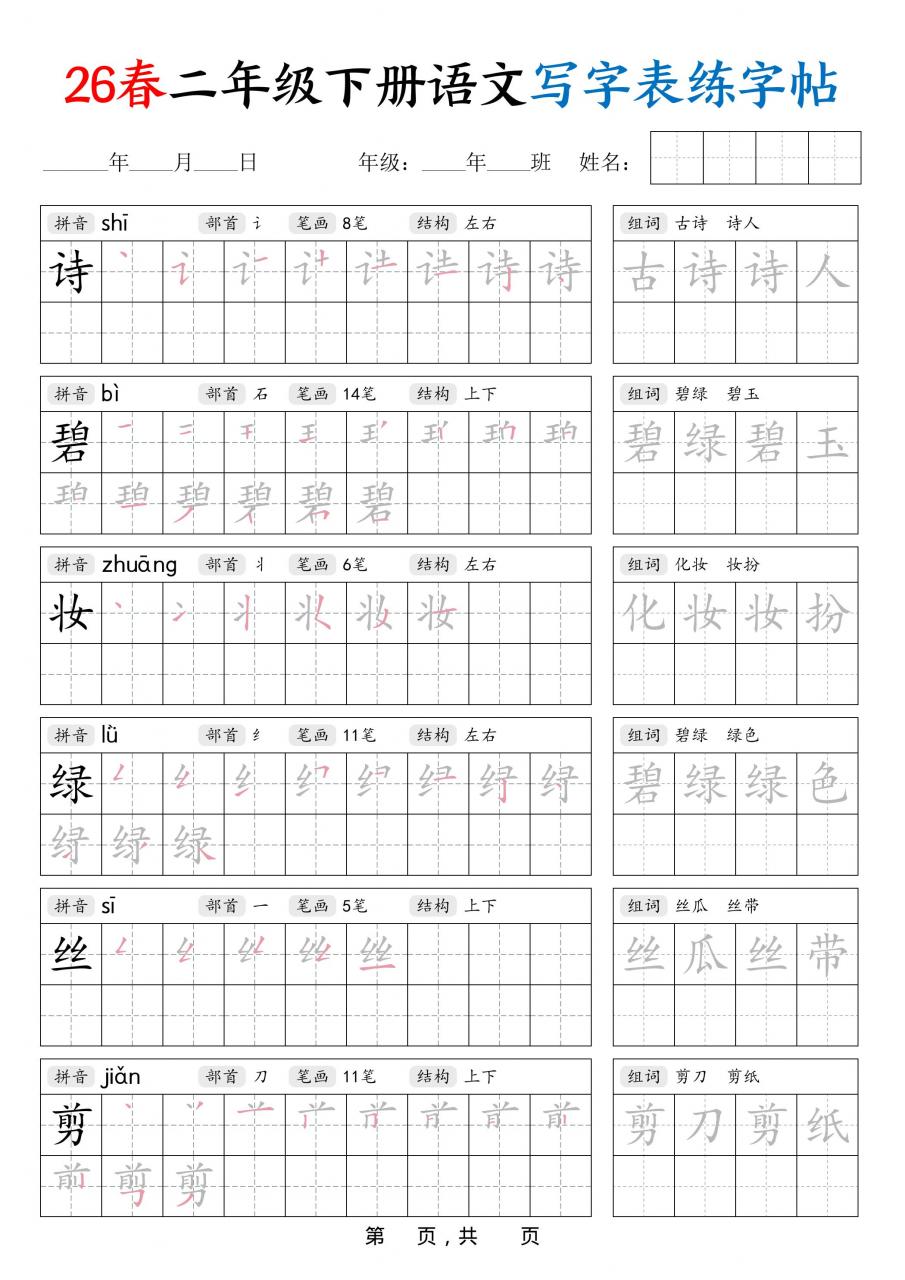 26春二年级下册语文写字表练字帖
______年____月____日 年级：____年____班 姓名：
拼音 shī 部首 讠 笔画 8笔 结构 左右 组词 古诗 诗人
诗 古诗诗人
拼音 bì 部首 石 笔画 14笔 结构 上下 组词 碧绿 碧玉
碧 碧绿碧玉
碧碧
拼音 zhuāng 部首 丬 笔画 6笔 结构 左右 组词 化妆 妆扮
妆 妆 化妆妆扮
拼音 lǜ 部首 纟 笔画 11笔 结构 左右 组词 碧绿 绿色
绿 碧绿绿色
绿
拼音 sī 部首 一 笔画 5笔 结构 上下 组词 丝瓜 丝带
丝 丝 丝瓜丝带
拼音 jiǎn 部首 刀 笔画 11笔 结构 上下 组词 剪刀 剪纸
剪 剪刀剪纸
前 剪
第 页，共 页